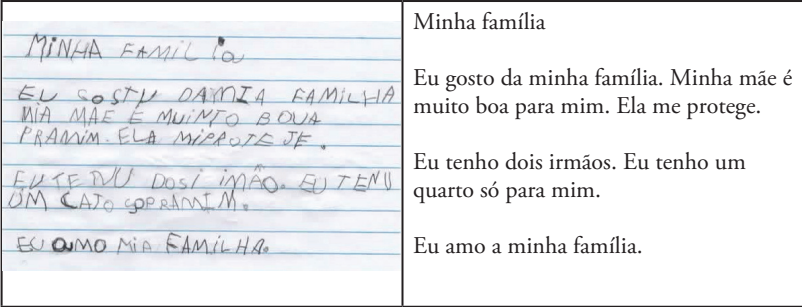 MINHA FAMILia
EU GOSTU DAMIA FAMILHA
MIA MÃE E MUINTO BOUA
PRAMIM. ELA MIPROTEJE.
EU TENU DOSI IMÃO. EU TENU
UM CATO SOPRAMIM.
EU aMO MiA FAMiLHA.
Minha família
Eu gosto da minha família. Minha mãe é
muito boa para mim. Ela me protege.
Eu tenho dois irmãos. Eu tenho um
quarto só para mim.
Eu amo a minha família.